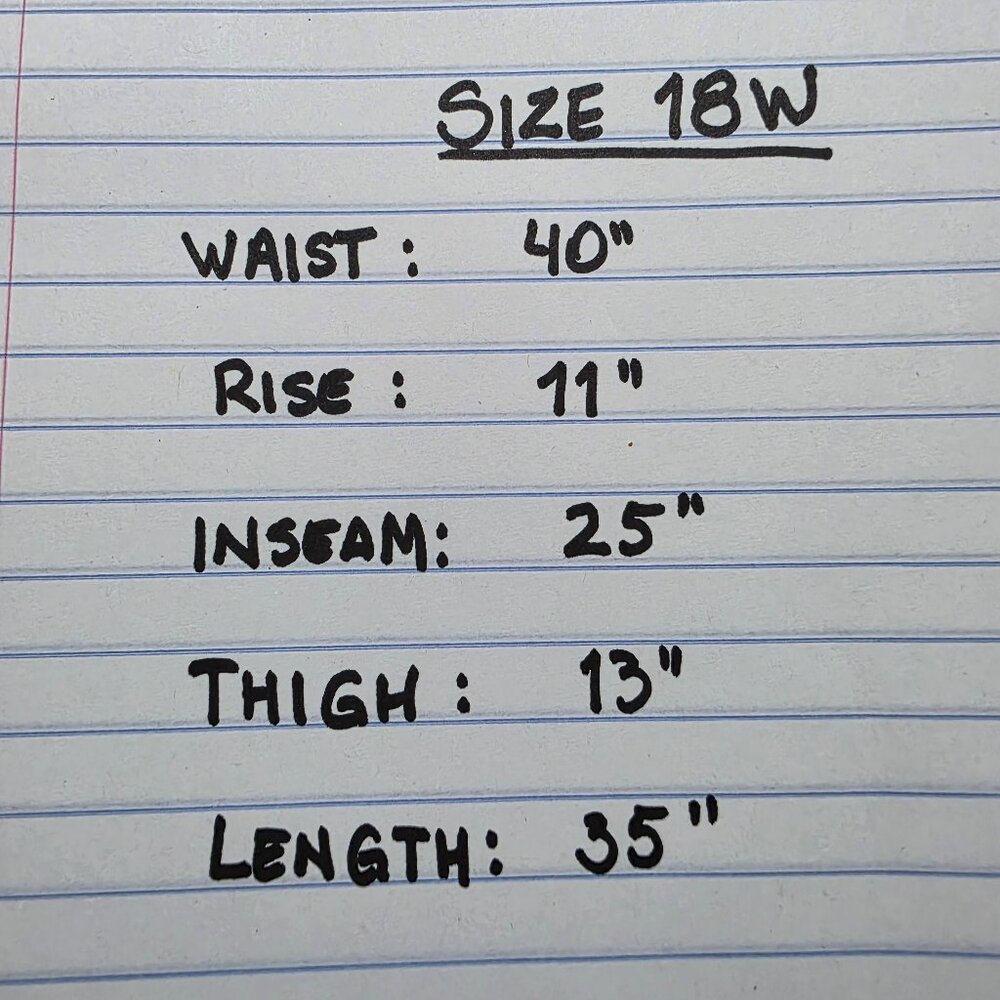 SIZE 18W
WAIST: 40"
RISE: 11"
INSEAM: 25"
THIGH: 13"
LENGTH: 35"